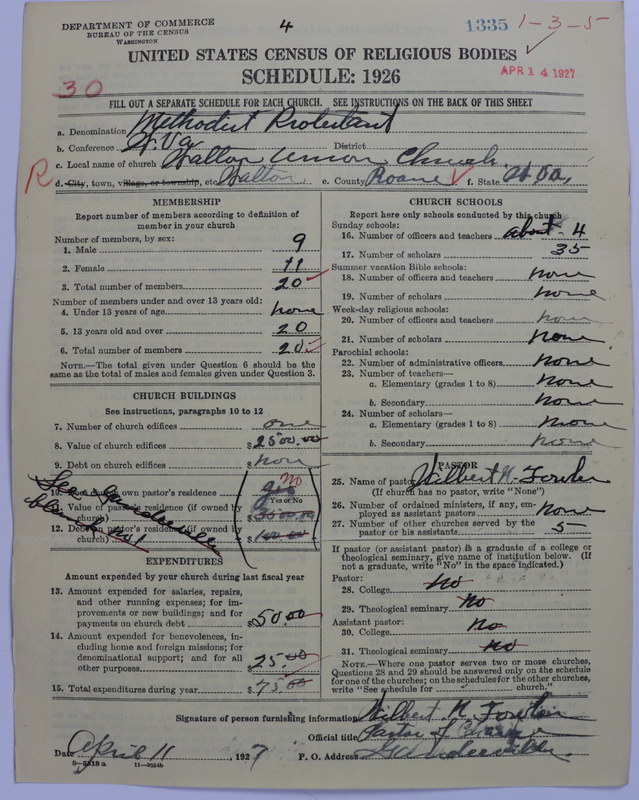 DEPARTMENT OF COMMERCE
BUREAU OF THE CENSUS
WASHINGTON
4
1335 1-3-5
UNITED STATES CENSUS OF RELIGIOUS BODIES
SCHEDULE: 1926
APR 14 1927
30
FILL OUT A SEPARATE SCHEDULE FOR EACH CHURCH. SEE INSTRUCTIONS ON THE BACK OF THIS SHEET
a. Denomination Methodist Protestant
b. Conference W. Va. District
c. Local name of church Walton Union Church
R
d. City, town, village, or township, etc. Walton e. County Roane f. State W Va.
MEMBERSHIP
Report number of members according to definition of
member in your church
Number of members, by sex:
1. Male 9
2. Female 11
3. Total number of members 20
Number of members under and over 13 years old:
4. Under 13 years of age none
5. 13 years old and over 20
6. Total number of members 20
NOTE.—The total given under Question 6 should be
the same as the total of males and females given under Question 3.
CHURCH BUILDINGS
See instructions, paragraphs 10 to 12
7. Number of church edifices one
8. Value of church edifices $2500.00
9. Debt on church edifices $ none
10. own pastor's residence yes no
Yes or No
11. Value of pastor's residence (if owned by
church)
12. Debt on pastor's residence (if owned by
church) $
See Ganderville
blank No1
EXPENDITURES
Amount expended by your church during last fiscal year
13. Amount expended for salaries, repairs,
and other running expenses; for im-
provements or new buildings; and for
payments on church debt $50.00
14. Amount expended for benevolences, in-
cluding home and foreign missions; for
denominational support; and for all
other purposes $25.00
15. Total expenditures during year $75.00
CHURCH SCHOOLS
Report here only schools conducted by this church
Sunday schools:
16. Number of officers and teachers about 4
17. Number of scholars 35
Summer vacation Bible schools:
18. Number of officers and teachers none
19. Number of scholars none
Week-day religious schools:
20. Number of officers and teachers none
21. Number of scholars none
Parochial schools:
22. Number of administrative officers none
23. Number of teachers—
a. Elementary (grades 1 to 8) none
b. Secondary none
24. Number of scholars—
a. Elementary (grades 1 to 8) none
b. Secondary none
PASTOR
25. Name of pastor Wilbert H. Fowler
(If church has no pastor, write "None")
26. Number of ordained ministers, if any, em-
ployed as assistant pastors none
27. Number of other churches served by the
pastor or his assistants 5
If pastor (or assistant pastor) is a graduate of a college or
theological seminary, give name of institution below. (If
not a graduate, write "No" in the space indicated.)
Pastor:
28. College No
29. Theological seminary No
Assistant pastor:
30. College No
31. Theological seminary No
NOTE.—Where one pastor serves two or more churches,
Questions 28 and 29 should be answered only on the schedule
for one of the churches; on the schedules for the other churches,
write "See schedule for church."
Signature of person furnishing information Wilbert H. Fowler
Official title Pastor of Charge
Date April 11, 1927 P. O. Address Ganderville.
S-3518 a 11-9054b